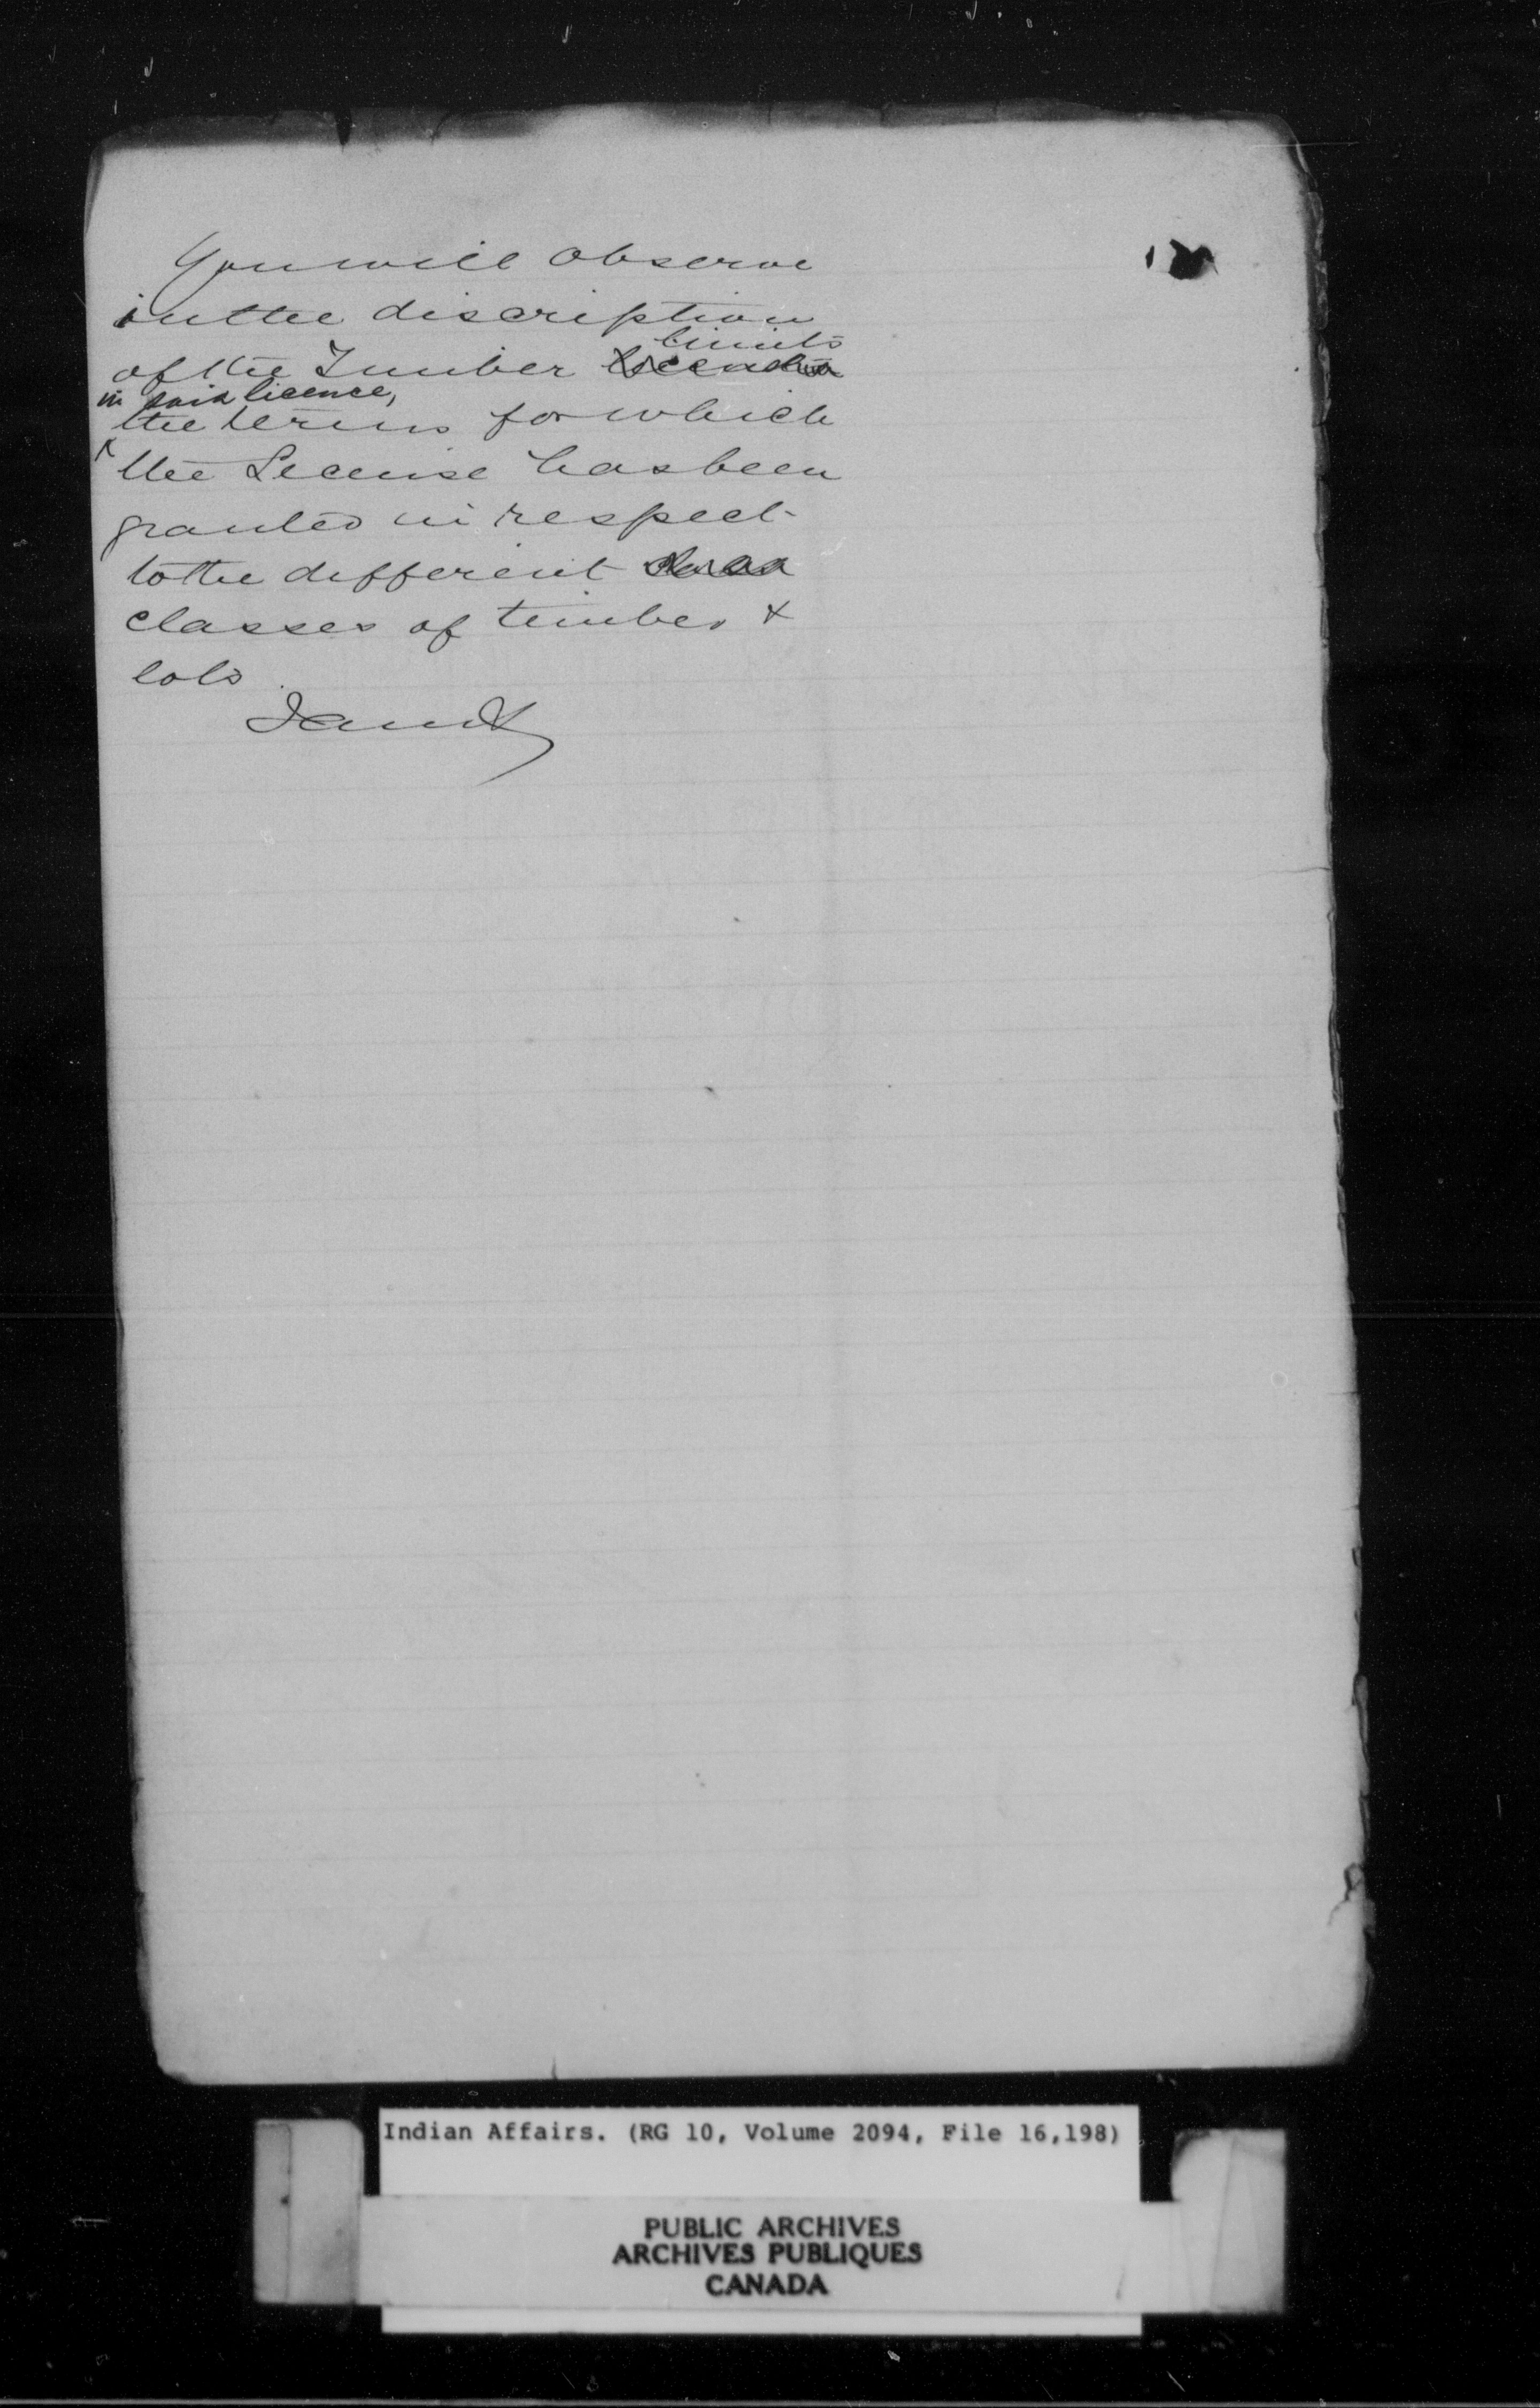 You will observe
in the discription
limits
of the Timber
in said licence,
the terms for which
the License has been
granted in respect
to the different
classes of timber &
lots
Indian Affairs. (RG 10, Volume 2094, File 16,198)
PUBLIC ARCHIVES
ARCHIVES PUBLIQUES
CANADA